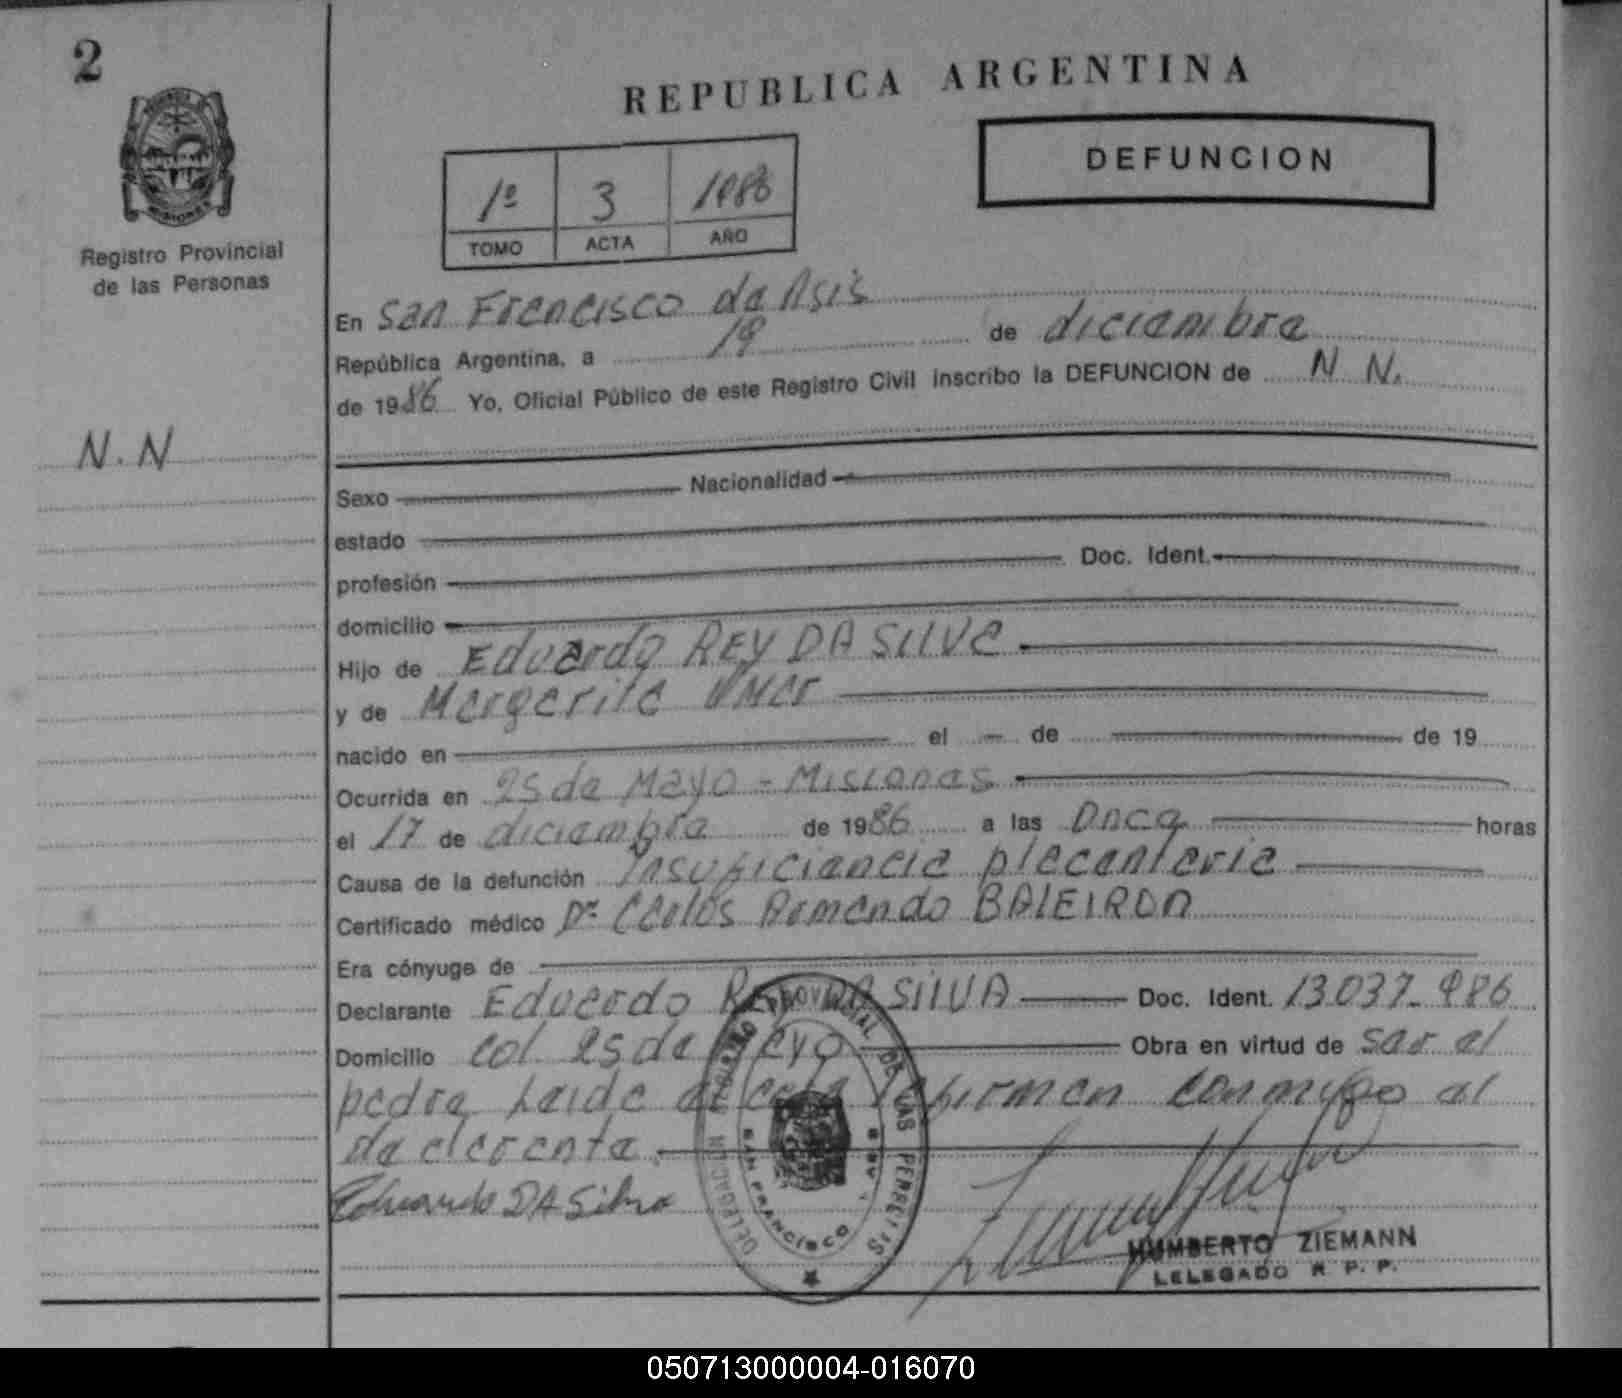 2
REPUBLICA ARGENTINA
DEFUNCION
1º 3 1986
TOMO ACTA AÑO
Registro Provincial
de las Personas
N.N
En San Francisco de Asis
República Argentina, a 19 de diciembre
de 1986 Yo, Oficial Público de este Registro Civil inscribo la DEFUNCION de N N.
Sexo Nacionalidad
estado
profesión Doc. Ident.
domicilio
Hijo de Eduardo REY DA SILVA
y de Margarita
nacido en el - de de 19
Ocurrida en 25 de Mayo - Misiones
el 17 de diciembre de 1986 a las Once horas
Causa de la defunción Insuficiencia placentaria
Certificado médico Dr. Carlos Armando BALEIRON
Era cónyuge de
Declarante Eduardo REY DA SILVA Doc. Ident. 13.037.986
Domicilio Col 25 de Mayo Obra en virtud de ser el
padre Leida el acta la firman conmigo el
declarante.
Eduardo DA Silva
DELEGACION REGISTRO PROVINCIAL DE LAS PERSONAS
SAN FRANCISCO DE ASIS
HUMBERTO ZIEMANN
DELEGADO R. P. P.
050713000004-016070